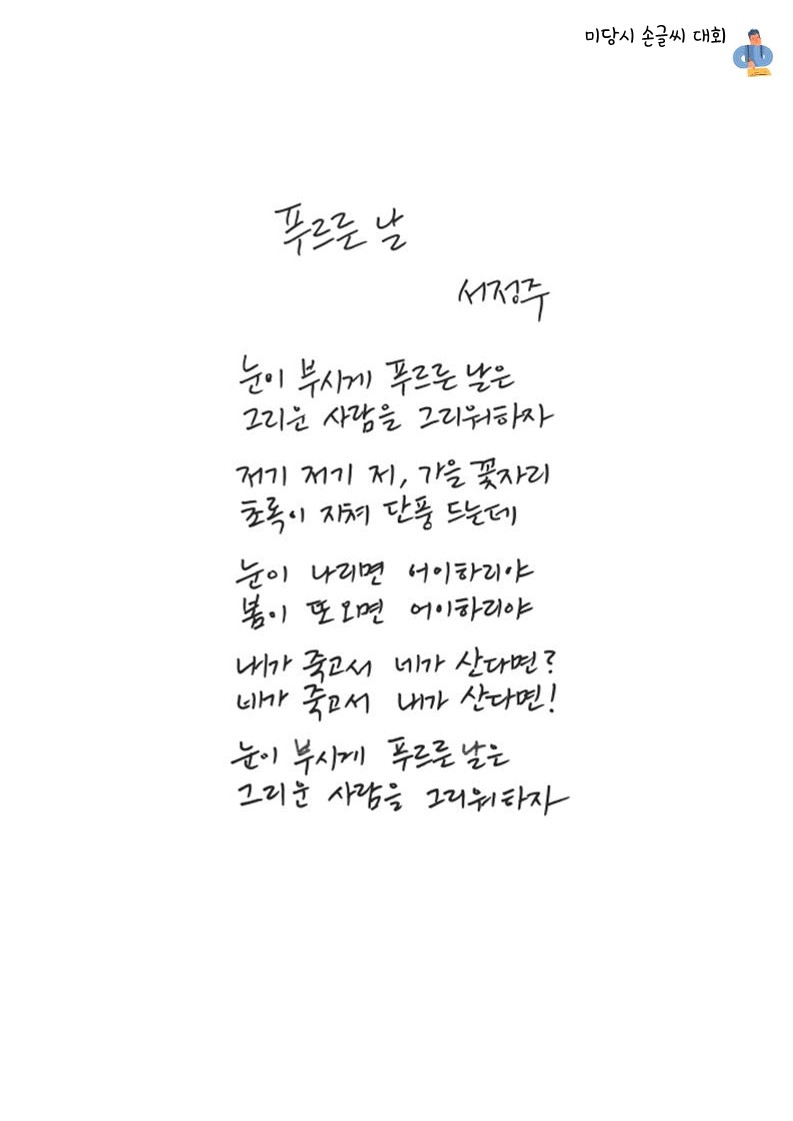 미당시 손글씨 대회
푸르른 날
서정주
눈이 부시게 푸르른 날은
그리운 사람을 그리워하자
저기 저기 저, 가을 꽃자리
초록이 지쳐 단풍 드는데
눈이 나리면 어이하리야
봄이 또 오면 어이하리야
내가 죽고서 네가 산다면?
네가 죽고서 내가 산다면!
눈이 부시게 푸르른 날은
그리운 사람을 그리워하자